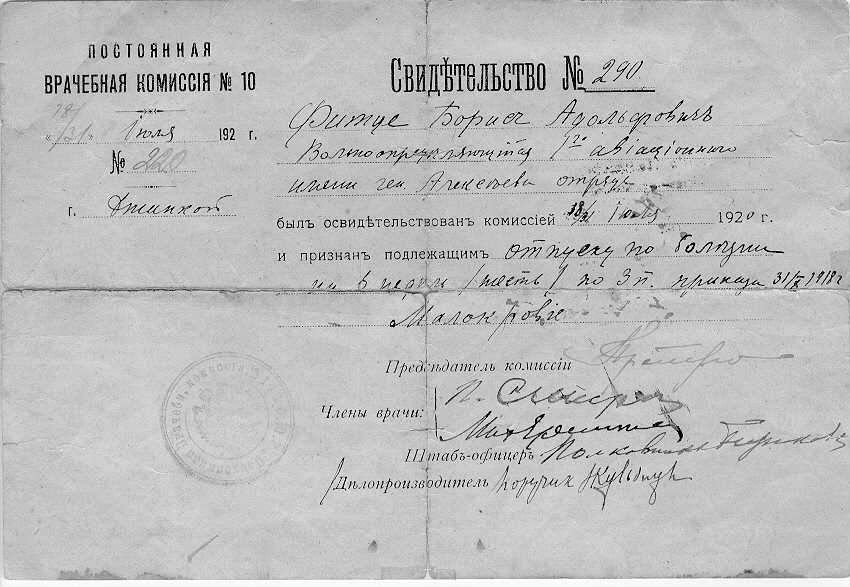 ПОСТОЯННАЯ
ВРАЧЕБНАЯ КОМИССІЯ № 10
18/31 Іюля 192 г.
№ 220
г. Джанкой
Свидѣтельство № 290.
Фитце Борисъ Адольфовичъ
Вольноопредѣляющійся 1го авіаціоннаго
имени ген. Алексѣева отряда
былъ освидѣтельствован комиссіей 18/31 Іюля 1920 г.
и признан подлежащимъ отпуску по болѣзни
на 6 недѣль /шесть/ по 3 п. приказа 31/X 1918 г
Малокровіе
Предсѣдатель комиссіи
Члены врачи:
Штабъ-офицеръ Полковникъ
/Дѣлопроизводитель Поручик